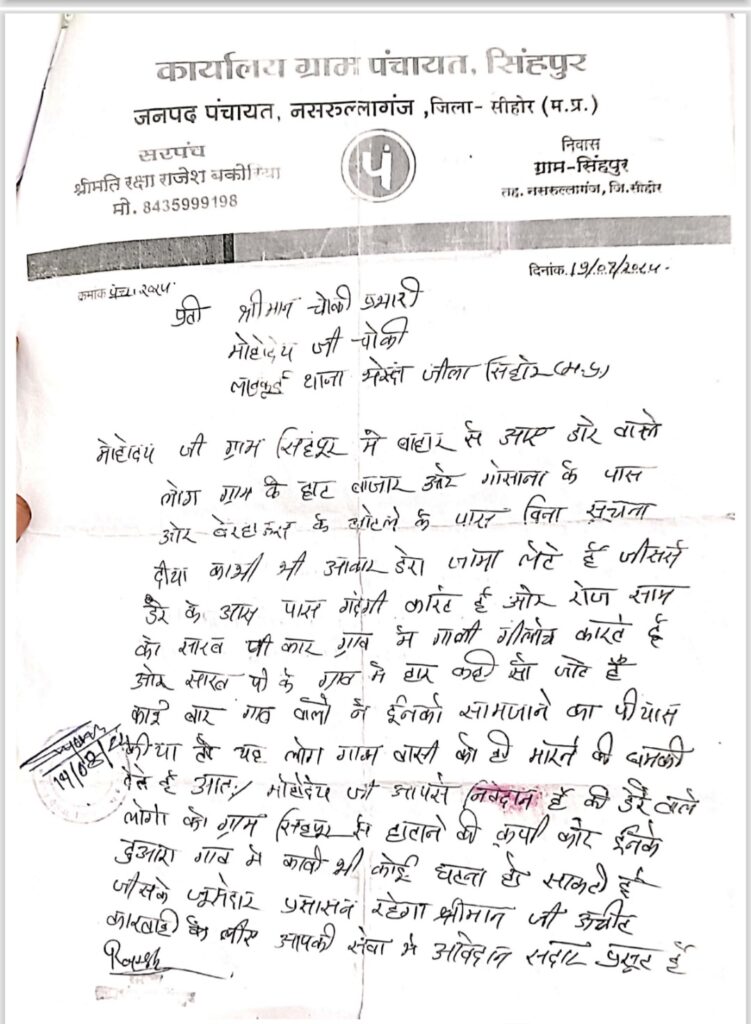 कार्यालय ग्राम पंचायत, सिंहपुर
जनपद पंचायत, नसरुल्लागंज ,जिला- सीहोर (म.प्र.)
सरपंच
श्रीमति रक्षा राजेश बकोरिया
मो. 8435999198
पं
निवास
ग्राम-सिंहपुर
तह. नसरुल्लागंज, जि.सीहोर
क्रमांक
दिनांक.
प्रती श्रीमान चोकी प्रभारी
मोहोदय जी चोकी
थाना जीला सिहोर (म.प्र)
मोहोदय जी ग्राम सिहपुर मे बाहार से आए डेरे वाले
लोग ग्राम के हाट बाजार ओर गोसाना के पास
ओर के के पास बिना सूचना
दीया काभी भी आकार डेरा जामा लेते है जीससे
डेरे के आस पास गंदगी कारते है ओर रोज साम
को साराब पी कार गाव मे गाली गीलोच कारते है
ओर साराब पी के गाव मे हार कही सो जाते है
काई बार गाव वालो ने ईनको सामजाने का पीयास
कीया तो यह लोग गाम वासी को ही मारने की धमकी
देते है आतः मोहोदय जी आपसे निवेदान है की डेरे वाले
लोगो को ग्राम सिहपुर से हाटाने की कृपा करे ईनके
दुआरा गाव मे काबी भी कोई घटना हो साकती है
जीसके जुमेदार प्रसासन रहेगा श्रीमान जी ऊचीत
कारवाही के लीए आपकी सेवा मे आवेदान सादार प्रसूत है